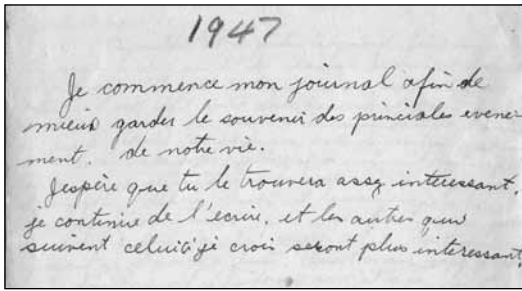 1947
Je commence mon journal afin de
mieux garder le souvenir des princiales evene-
ment. de notre vie.
J'espère que tu le trouvera assez interessant.
je continue de l'écrire, et les autres qui
suivent celui ci je crois seront plus interessant.